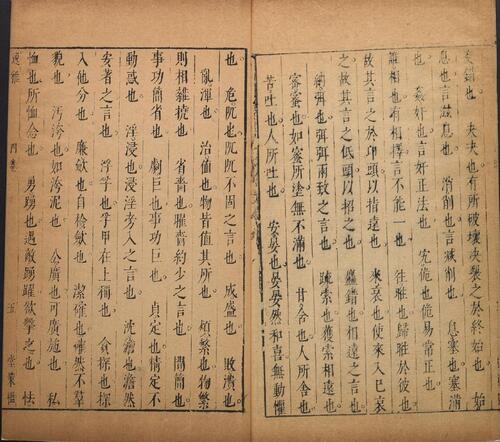 錯也。夬夬也有所破壞夬裂之於終始也。始
息也言滋息也。消削也言減削也。息塞也塞滿
也。姦奸也言奸正法也。宄佹也佹易常正也。
誰相也有相擇言不能一也。往暀也歸暀於彼也
故其言之於卬頭以指遠也。來哀也使來入己哀
之故其言之低頭以招之也。麤錯也相遠之言也。
納弭也弭弭兩致之言也。疏索也獲索相遠也。
密蜜也如蜜所塗無不滿也。甘含也人所含也。
苦吐也人所吐也。安晏也晏晏然和喜無動懼
也。危阢也阢阢不固之言也。成盛也。敗潰也。
亂渾也。治値也物皆値其所也。煩繁也物繁
則相雜撓也。省嗇也臞嗇約少之言也。間簡也
事功簡省也。劇巨也事功巨也。貞定也精定不
動惑也。淫浸也浸淫旁入之言也。沈澹也澹然
安著之言也。浮孚也孚甲在上稱也。貪探也探
入他分也。廉斂也自檢斂也。潔確也確然不羣
貌也。汚洿也如洿泥也。公廣也可廣施也。私
恤也所恤念也。勇踴也遇敵踴躍欲擊之也。怯
逸雅 四卷 五 堂策檻